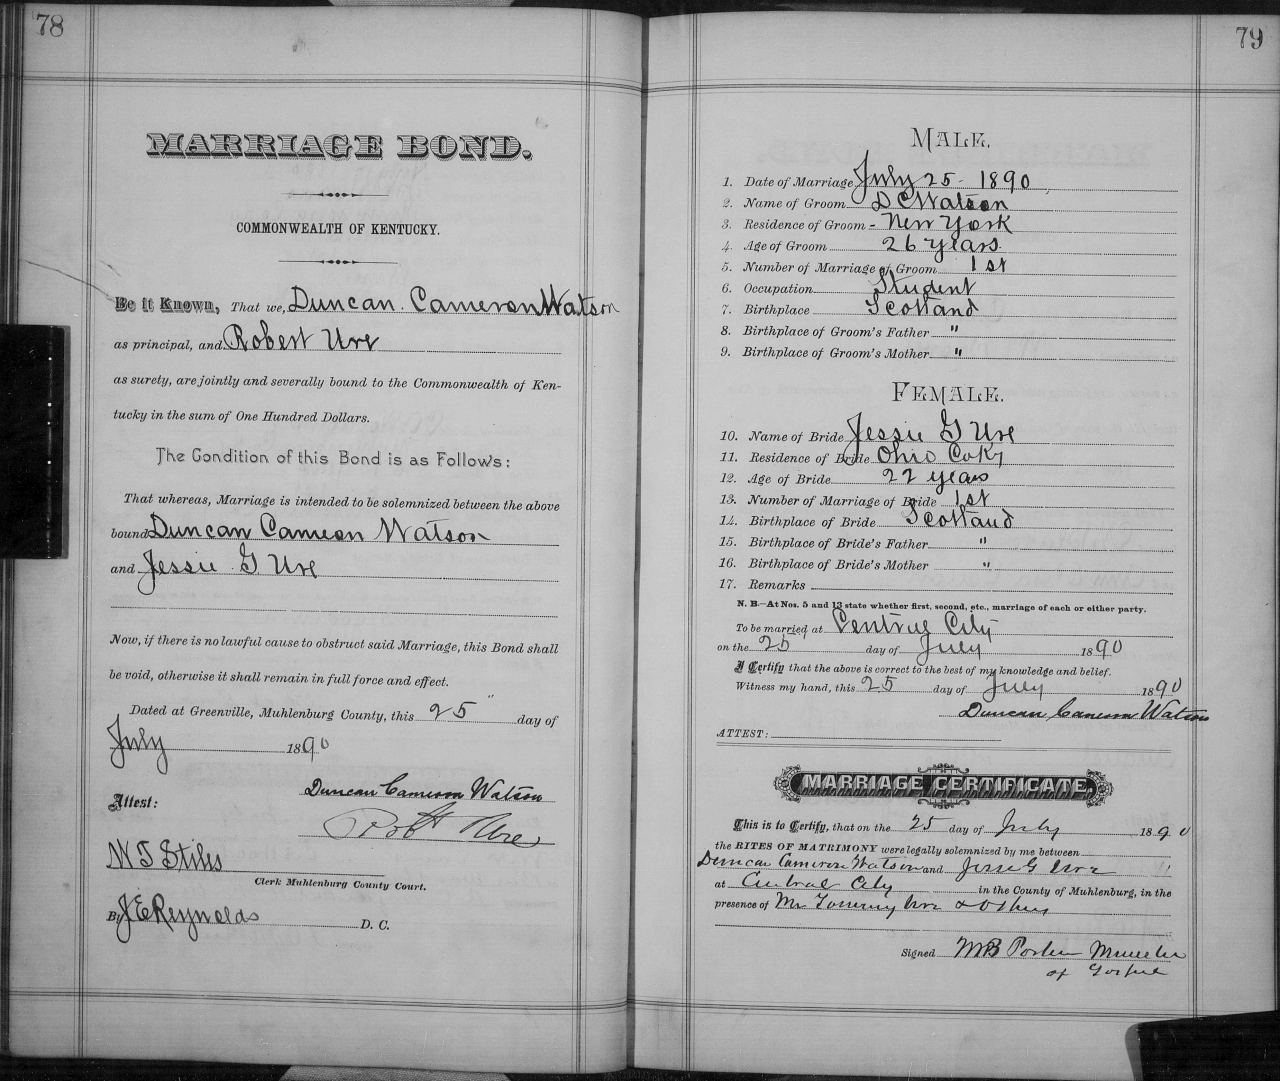 78
MARRIAGE BOND.
COMMONWEALTH OF KENTUCKY.
Be it Known, That we, Duncan Cameron Watson
as principal, and Robert Ure
as surety, are jointly and severally bound to the Commonwealth of Ken-
tucky in the sum of One Hundred Dollars.
The Condition of this Bond is as Follows:
That whereas, Marriage is intended to be solemnized between the above
bound Duncan Cameron Watson
and Jessie G Ure
Now, if there is no lawful cause to obstruct said Marriage, this Bond shall
be void, otherwise it shall remain in full force and effect.
Dated at Greenville, Muhlenburg County, this 25" day of
July 1890
Duncan Cameron Watson
Attest:
Robt Ure
W T Stiles
Clerk Muhlenburg County Court.
By J E Reynolds D. C.
79
MALE.
1. Date of Marriage July 25 - 1890
2. Name of Groom D C Watson
3. Residence of Groom - New York
4. Age of Groom 26 years
5. Number of Marriage of Groom 1st
6. Occupation Student
7. Birthplace Scotland
8. Birthplace of Groom's Father "
9. Birthplace of Groom's Mother "
FEMALE.
10. Name of Bride Jessie G Ure
11. Residence of Bride Ohio Co Ky
12. Age of Bride 22 years
13. Number of Marriage of Bride 1st
14. Birthplace of Bride Scotland
15. Birthplace of Bride's Father "
16. Birthplace of Bride's Mother "
17. Remarks
N. B.—At Nos. 5 and 13 state whether first, second, etc., marriage of each or either party.
To be married at Central City
on the 25 day of July 1890
I Certify that the above is correct to the best of my knowledge and belief.
Witness my hand, this 25 day of July 1890
Duncan Cameron Watson
ATTEST:
MARRIAGE CERTIFICATE.
This is to Certify, that on the 25 day of July 1890
the RITES OF MATRIMONY were legally solemnized by me between
Duncan Cameron Watson and Jessie G Ure
at Central City in the County of Muhlenburg, in the
presence of Mr Tommy Ure & Others
Signed W B Minister
of Gospel